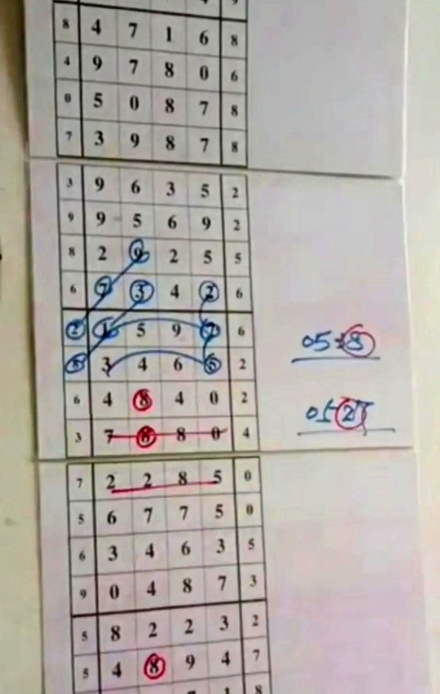 8 4 7 1 6 8
4 9 7 8 0 6
0 5 0 8 7 8
7 3 9 8 7 8
3 9 6 3 5 2
9 9 5 6 9 2
8 2 9 2 5 5
6 7 3 4 2 6
2 1 5 9 7 6
5 3 4 6 6 2
6 4 8 4 0 2
3 7 8 8 0 4
7 2 2 8 5 0
5 6 7 7 5 0
6 3 4 6 3 5
9 0 4 8 7 3
5 8 2 2 3 2
5 4 8 9 4 7